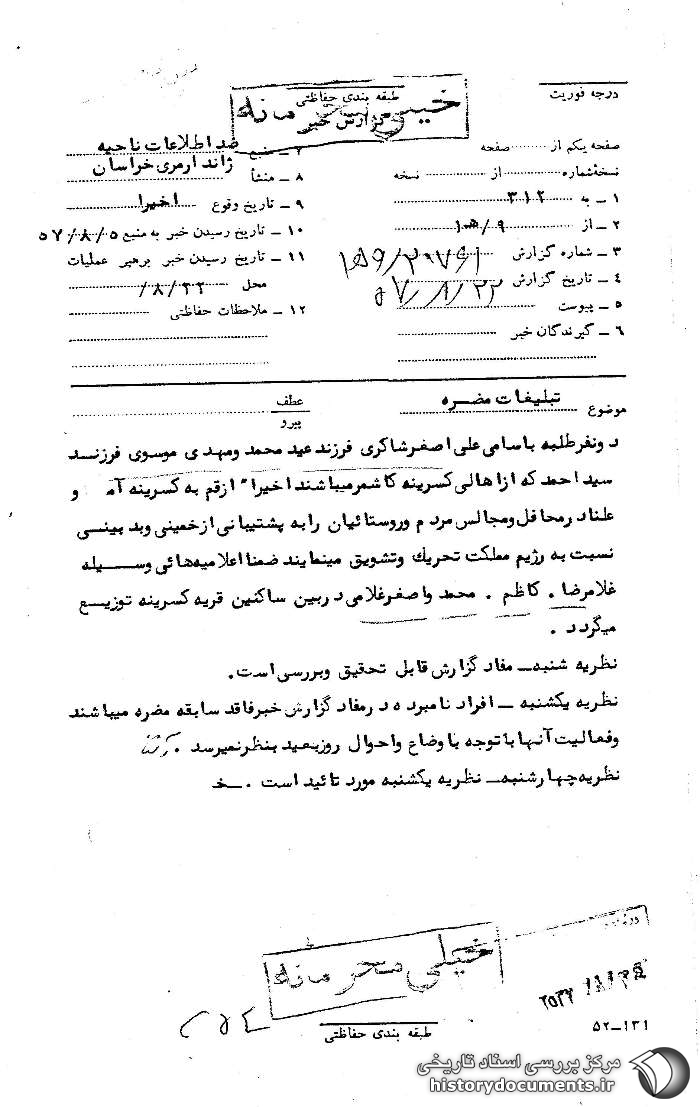 درجه فوریت
طبقه بندی حفاظتی
خیلی محرمانه
گزارش خبر
صفحه یکم از صفحه
نسخه‌شماره از نسخه
۱ ـ به ۳۱۲
۲ ـ از ۹/ه‍۱
۳ ـ شماره گزارش
۴ ـ تاریخ گزارش ۵۷/۸/۲۲
۵ ـ پیوست
۶ ـ گیرندگان خبر
۷ ـ منبع ضد اطلاعات ناحیه
۸ ـ منشأ ژاندارمری خراسان
۹ ـ تاریخ وقوع اخیرا
۱۰ ـ تاریخ رسیدن خبر به منبع ۵۷/۸/۵
۱۱ ـ تاریخ رسیدن خبر برهبر عملیات
محل ۲۲/۸/
۱۲ ـ ملاحظات حفاظتی
موضوع تبلیغات مضره
عطف
پیرو
دونفرطلبه باسامی علی اصغرشاکری فرزند عید محمد ومهدی موسوی فرزند
سید احمد که ازاهالی کسرینه کاشمرمیباشند اخیرا" ازقم به کسرینه آمده و
علناد رمحافل ومجالس مردم وروستائیان رابه پشتیبانی ازخمینی وبد بینی
نسبت به رژیم مملکت تحریك وتشویق مینمایند ضمنا اعلامیه‌هائی وسیله
غلامرضا . کاظم . محمد واصغرغلامی دربین ساکنین قریه کسرینه توزیع
میگردد .
نظریه شنبه ـ مفاد گزارش قابل تحقیق وبررسی است.
نظریه یکشنبه ـ افراد نامبرده درمفاد گزارش خبرفاقد سابقه مضره میباشند
وفعالیت آنها باتوجه باوضاع واحوال روزبعید بنظرنمیرسد .
نظریه‌چهارشنبه ـ نظریه یکشنبه مورد تائید است . ـخـ
خیلی محرمانه
طبقه بندی حفاظتی
۵۲ـ۱۳۱
مرکز بررسی اسناد تاریخی
historydocuments.ir